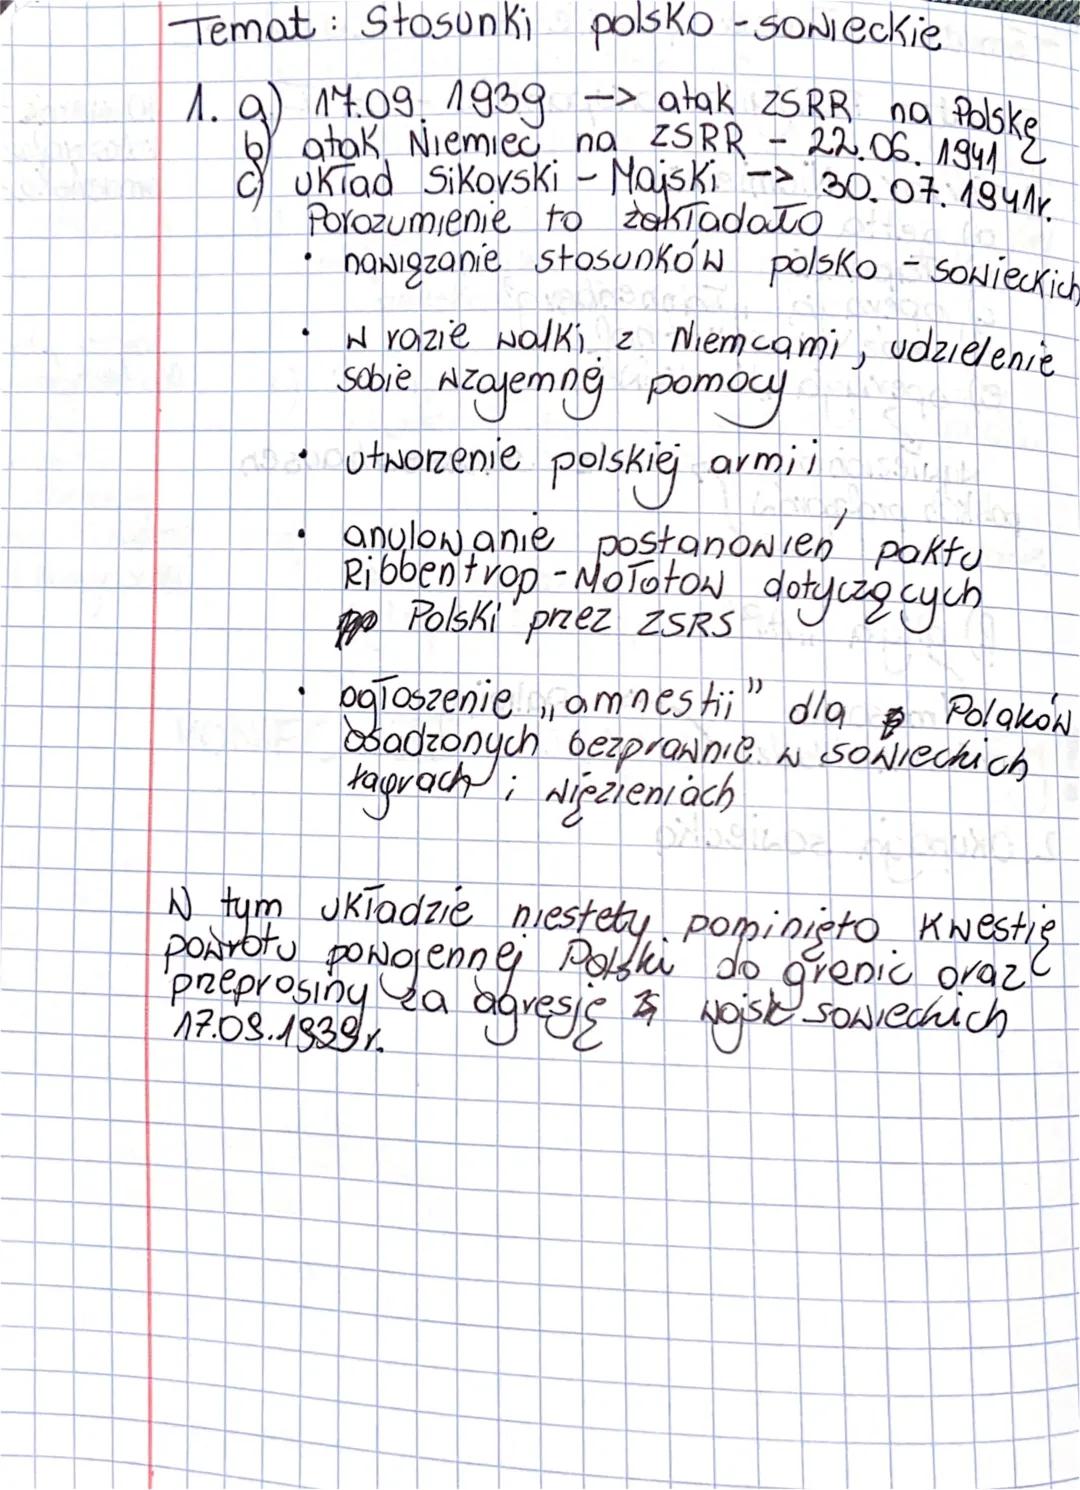 Temat: Stosunki polsko-sowieckie
1. a) 17.09. 1939 --> atak ZSRR na Polskę
b) atak Niemiec na ZSRR - 22.06. 1941
c) układ Sikorski - Majski --> 30.07.1941r.
Porozumienie to zakładało
• nawiązanie stosunków polsko - sowieckich
• w razie walki z Niemcami, udzielenie
sobie wzajemnej pomocy
• utworzenie polskiej armii
• anulowanie postanowień paktu
Ribbentrop-Mołotow dotyczących
Polski przez ZSRS
• ogłoszenie „amnestii” dla Polaków
osadzonych bezprawnie w sowieckich
łagrach i więzieniach
W tym układzie niestety pominięto kwestię
powrotu powojennej Polski do granic oraz
przeprosiny za agresję wojsk sowieckich
17.09.1939r.